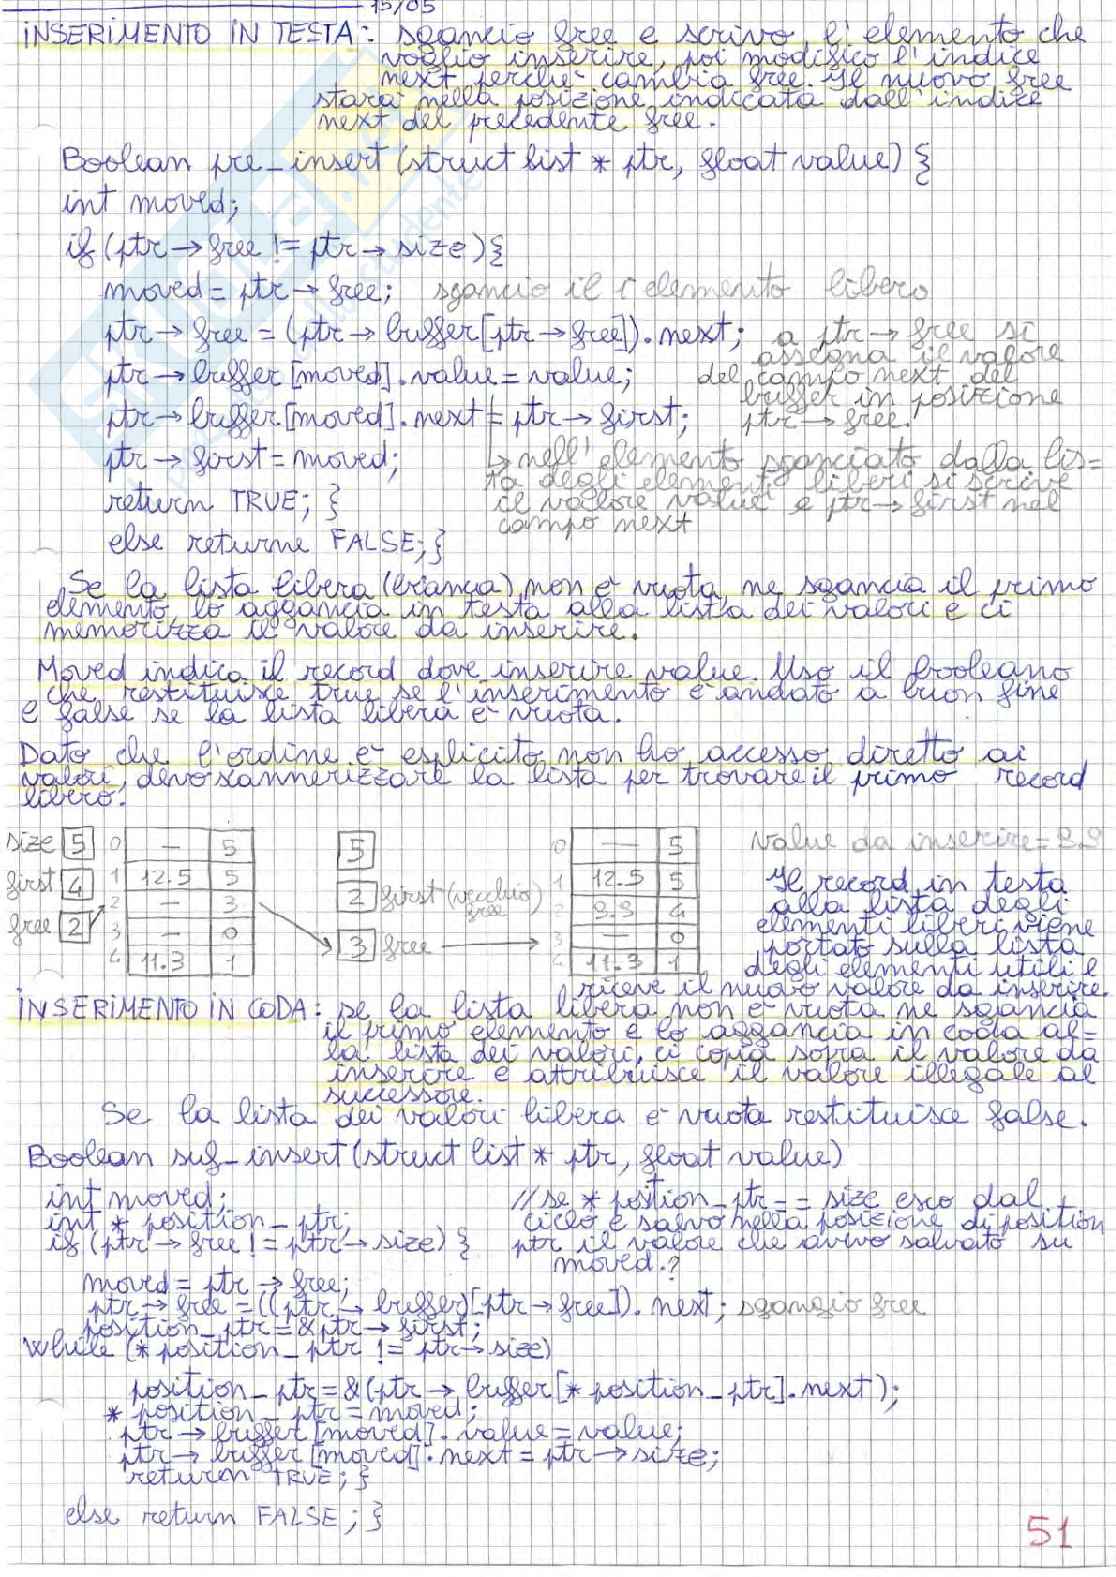 15/05
INSERIMENTO IN TESTA: sgancio free e scrivo l'elemento che
voglio inserire, poi modifico l'indice
next perché cambia free. Il nuovo free
starà nella posizione indicata dall'indice
next del precedente free.
Boolean pre_insert (struct list * ptr, float value) {
int moved;
if (ptr → free != ptr → size) {
moved = ptr → free; sgancio il 1° elemento libero
ptr → free = (ptr → buffer [ptr → free]).next; a ptr → free si
assegna il valore
ptr → buffer [moved].value = value; del campo next del
buffer in posizione
ptr → buffer.[moved].next = ptr → first; ptr → free.
ptr → first = moved; ↳ nell'elemento sganciato dalla lis=
ta degli elementi liberi si scrive
return TRUE; } il valore value e ptr → first nel
campo next
else returne FALSE; }
Se la lista libera (bianca) non è vuota ne sgancia il primo
elemento, lo aggancia in testa alla lista dei valori e ci
memorizza il valore da inserire.
Moved indica il record dove inserire value. Uso il booleano
che restituisce true se l'inserimento è andato a buon fine
e false se la lista libera è vuota.
Dato che l'ordine è esplicito non ho accesso diretto ai
valori, devo scannerizzare la lista per trovare il primo record
libero.
size 5 0 — 5 5 0 — 5 Value da inserire = 9.9
first 4 1 12.5 5 2 first (vecchio free) 1 12.5 5 Il record in testa
free 2 2 — 3 3 free 2 9.9 4 alla lista degli
3 — 0 3 — 0 elementi liberi viene
4 11.3 1 4 11.3 1 portato sulla lista
degli elementi utili e
riceve il nuovo valore da inserire.
INSERIMENTO IN CODA: se la lista libera non è vuota ne sgancia
il primo elemento e lo aggancia in coda al=
la lista dei valori, ci copia sopra il valore da
inserire e attribuisce il valore illegale al
successore.
Se la lista dei valori libera è vuota restituisce false.
Boolean suf_insert (struct list * ptr, float value)
int moved; //se * position_ptr == size esco dal
int * position_ptr; ciclo e salvo nella posizione di position
if (ptr → free != ptr → size) { ptr il valore che avevo salvato su
moved.?
moved = ptr → free;
ptr → free = ((ptr → buffer)[ptr → free]).next; sgancio free
position_ptr = &ptr → first;
While (* position_ptr != ptr → size)
position_ptr = &(ptr → buffer [* position_ptr].next);
* position_ptr = moved;
ptr → buffer [moved].value = value;
ptr → buffer [moved].next = ptr → size;
return TRUE; }
else return FALSE; }
51